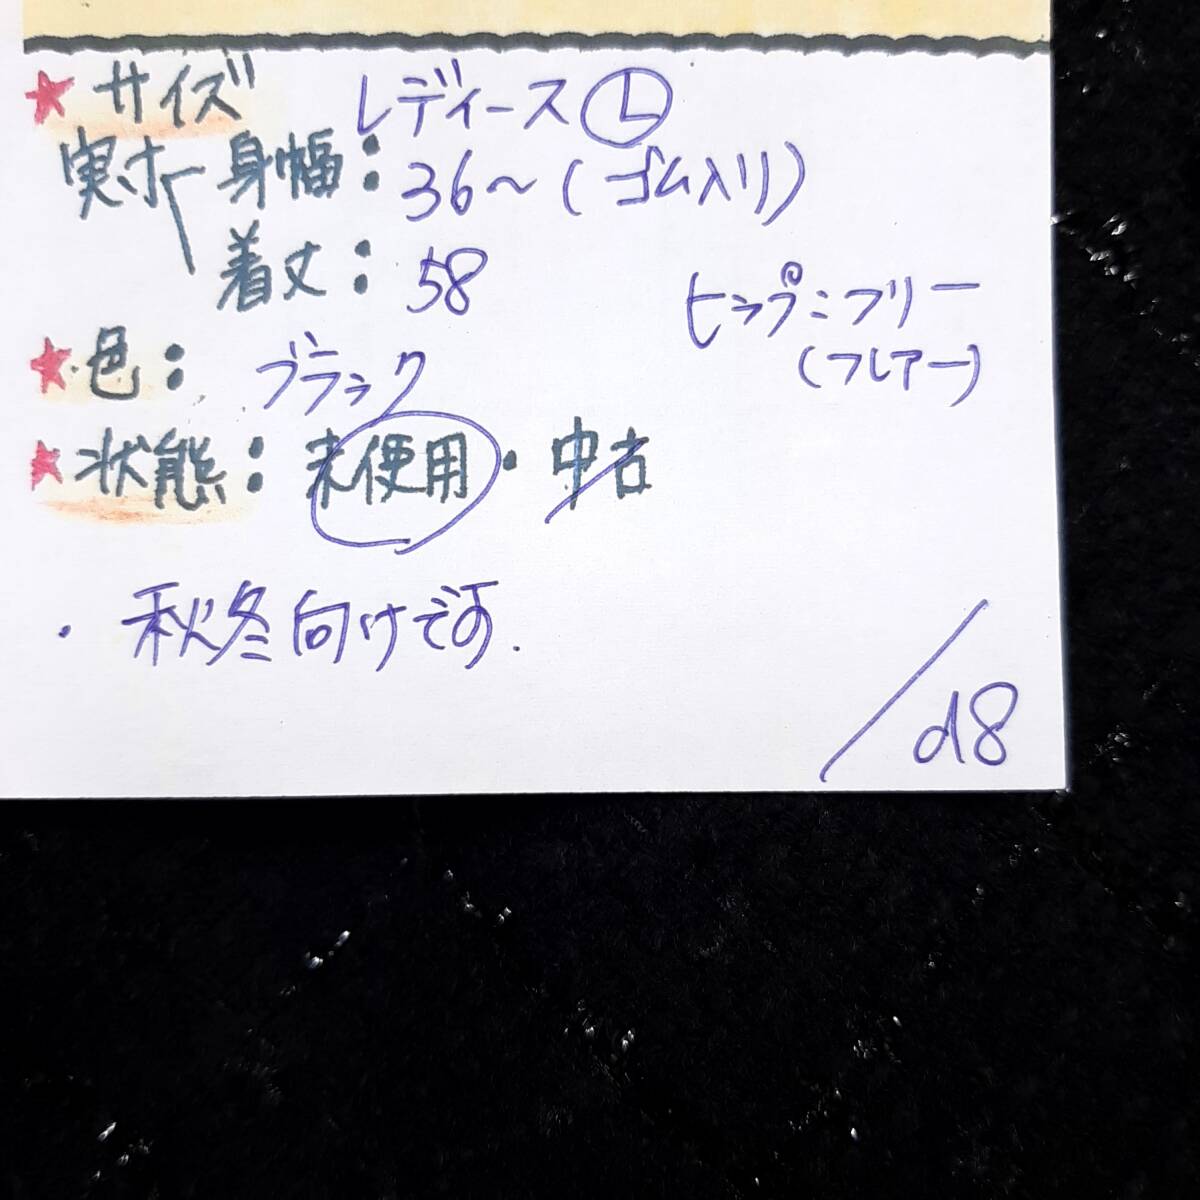 ★サイズ レディースⓁ
実寸 身幅：36～(ゴム入り)
着丈：58
ヒップ：フリー
(フレアー)
★色：ブラック
★状態：未使用・中古
・秋冬向けです.
/d8